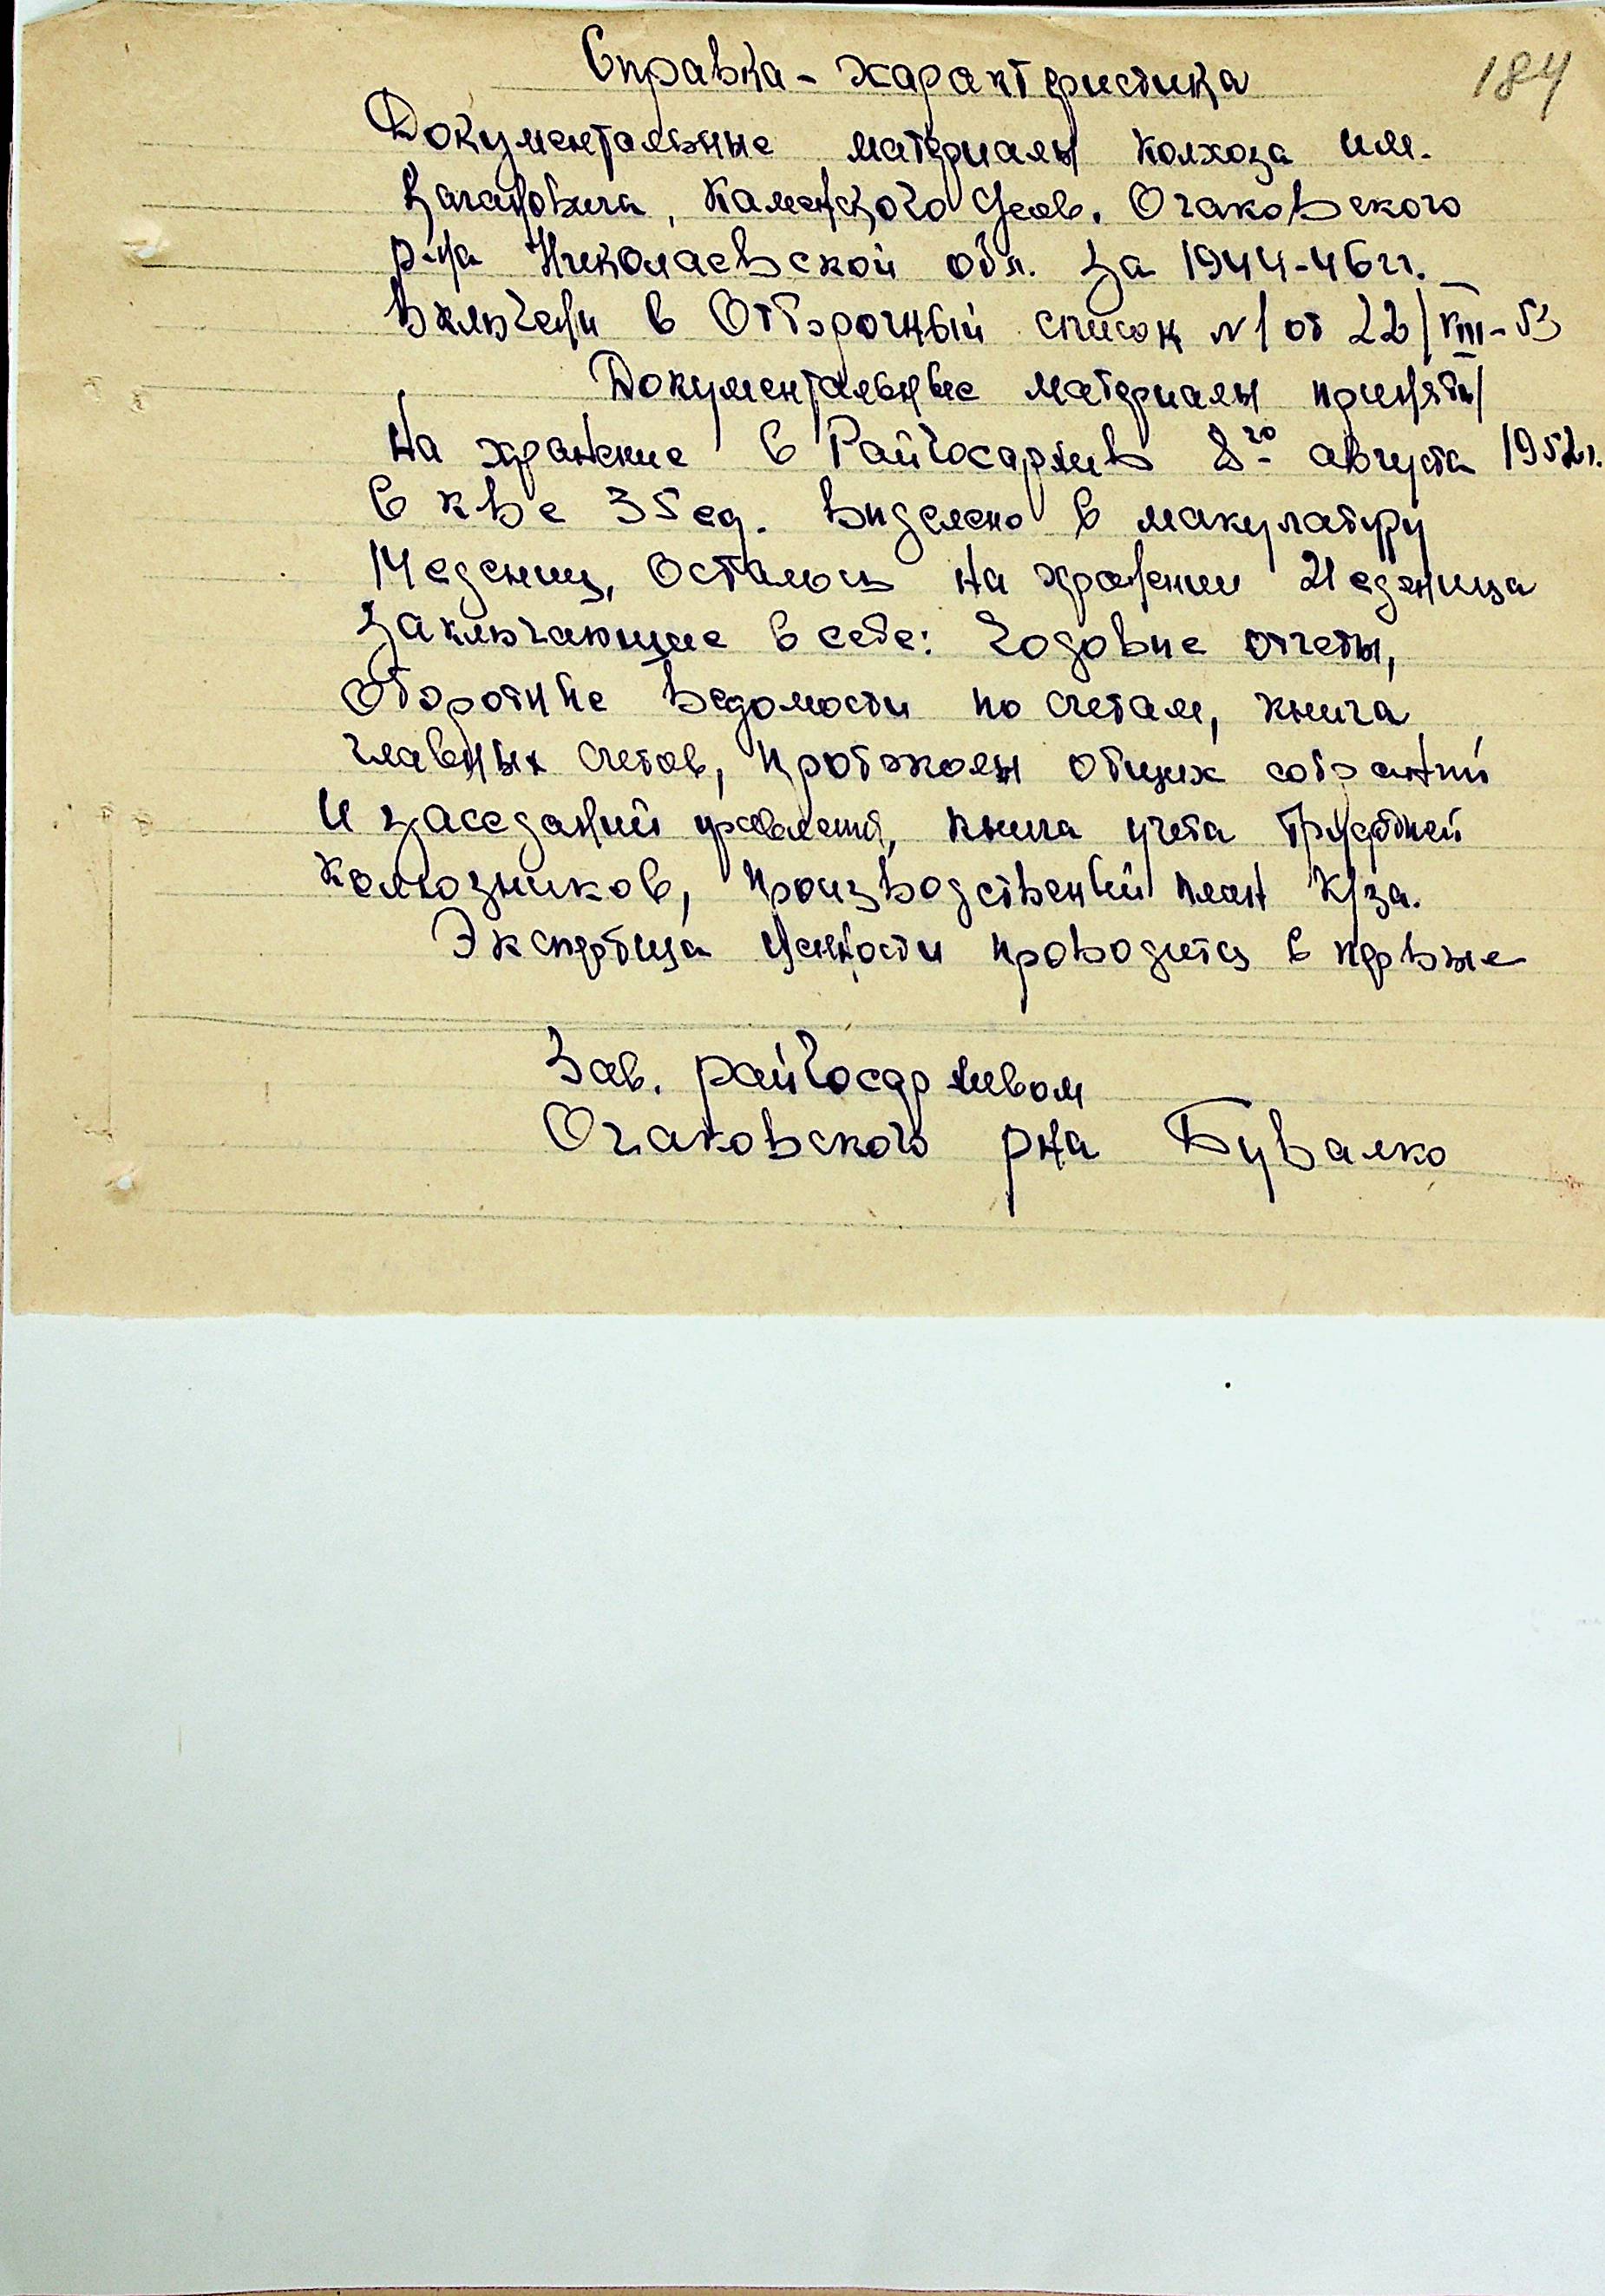 184
Справка - характеристика
Документальные материалы колхоза им.
Кагановича, Каменского Очаковского
р-на Николаевской обл. за 1944-46 гг.
Включени в Отборочный список №1 от 22/VIII-53
Документальные материалы приняты
на хранение в Райгосархив 8го августа 1952г.
в к-ве 35 ед. Виделено в макулатуру
14 едениц, осталось на хранении 21 еденица
заключающие в себе: годовие отчеты,
оборотные ведомости по счетам, книга
главных счетов, протоколы общих собраний
и заседаний правления, книга учета трудодней
колхозников, производственый план к/за.
Экспертиза ценности проводится в первые
Зав. райгосархивом
Очаковского рна Бувалко